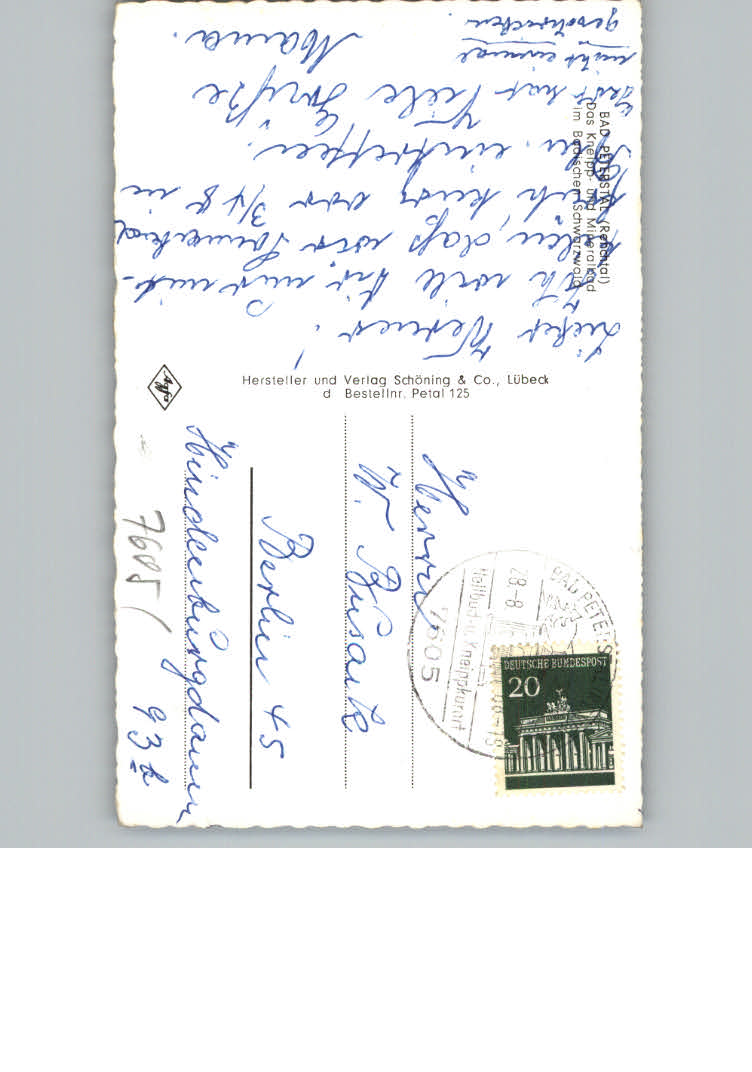 BAD PETERSTAL (Renchtal)
Das Kneipp- und Mineralbad
im Badischen Schwarzwald
Lieber Werner!
Ich will Dir nur mit-
teilen, daß wir Sonnabend
kurz vor 3/4 8 in
eintreffen.
hat Viele Grüße
nicht einmal Mama.
geschrieben.
Agfa
Hersteller und Verlag Schöning & Co., Lübeck
d Bestellnr. Petal 125
Herrn
W. Busack
Berlin 45
Hindenburgdamm
93
7605/
BAD PETERSTAL
28-8
Heilbad u. Kneippkurort
7605
DEUTSCHE BUNDESPOST
20